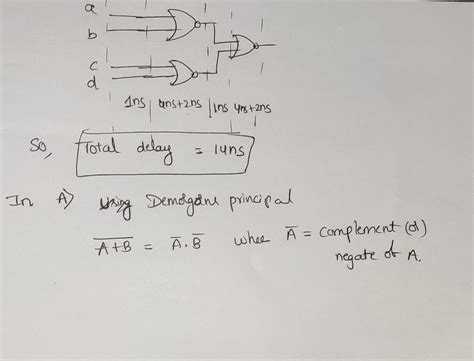 a
b
c
d
1ns | 4ns+2ns | 1ns 4ns+2ns
So, Total delay = 14ns
In A) Using Demorgans principal
\overline{A+B} = \overline{A}.\overline{B} whee \overline{A} = complement (or)
negate of A.